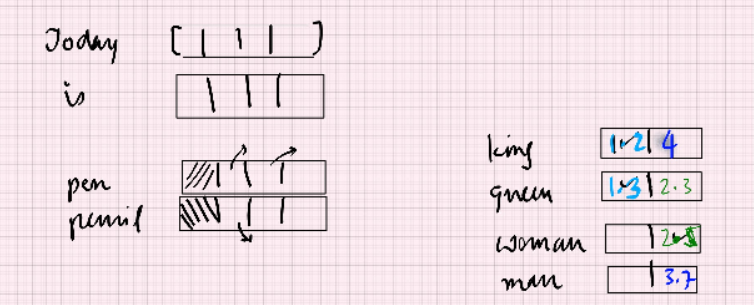 Today
is
pen
pencil
king 1.2 4
queen 1.3 2.3
woman
man 3.7